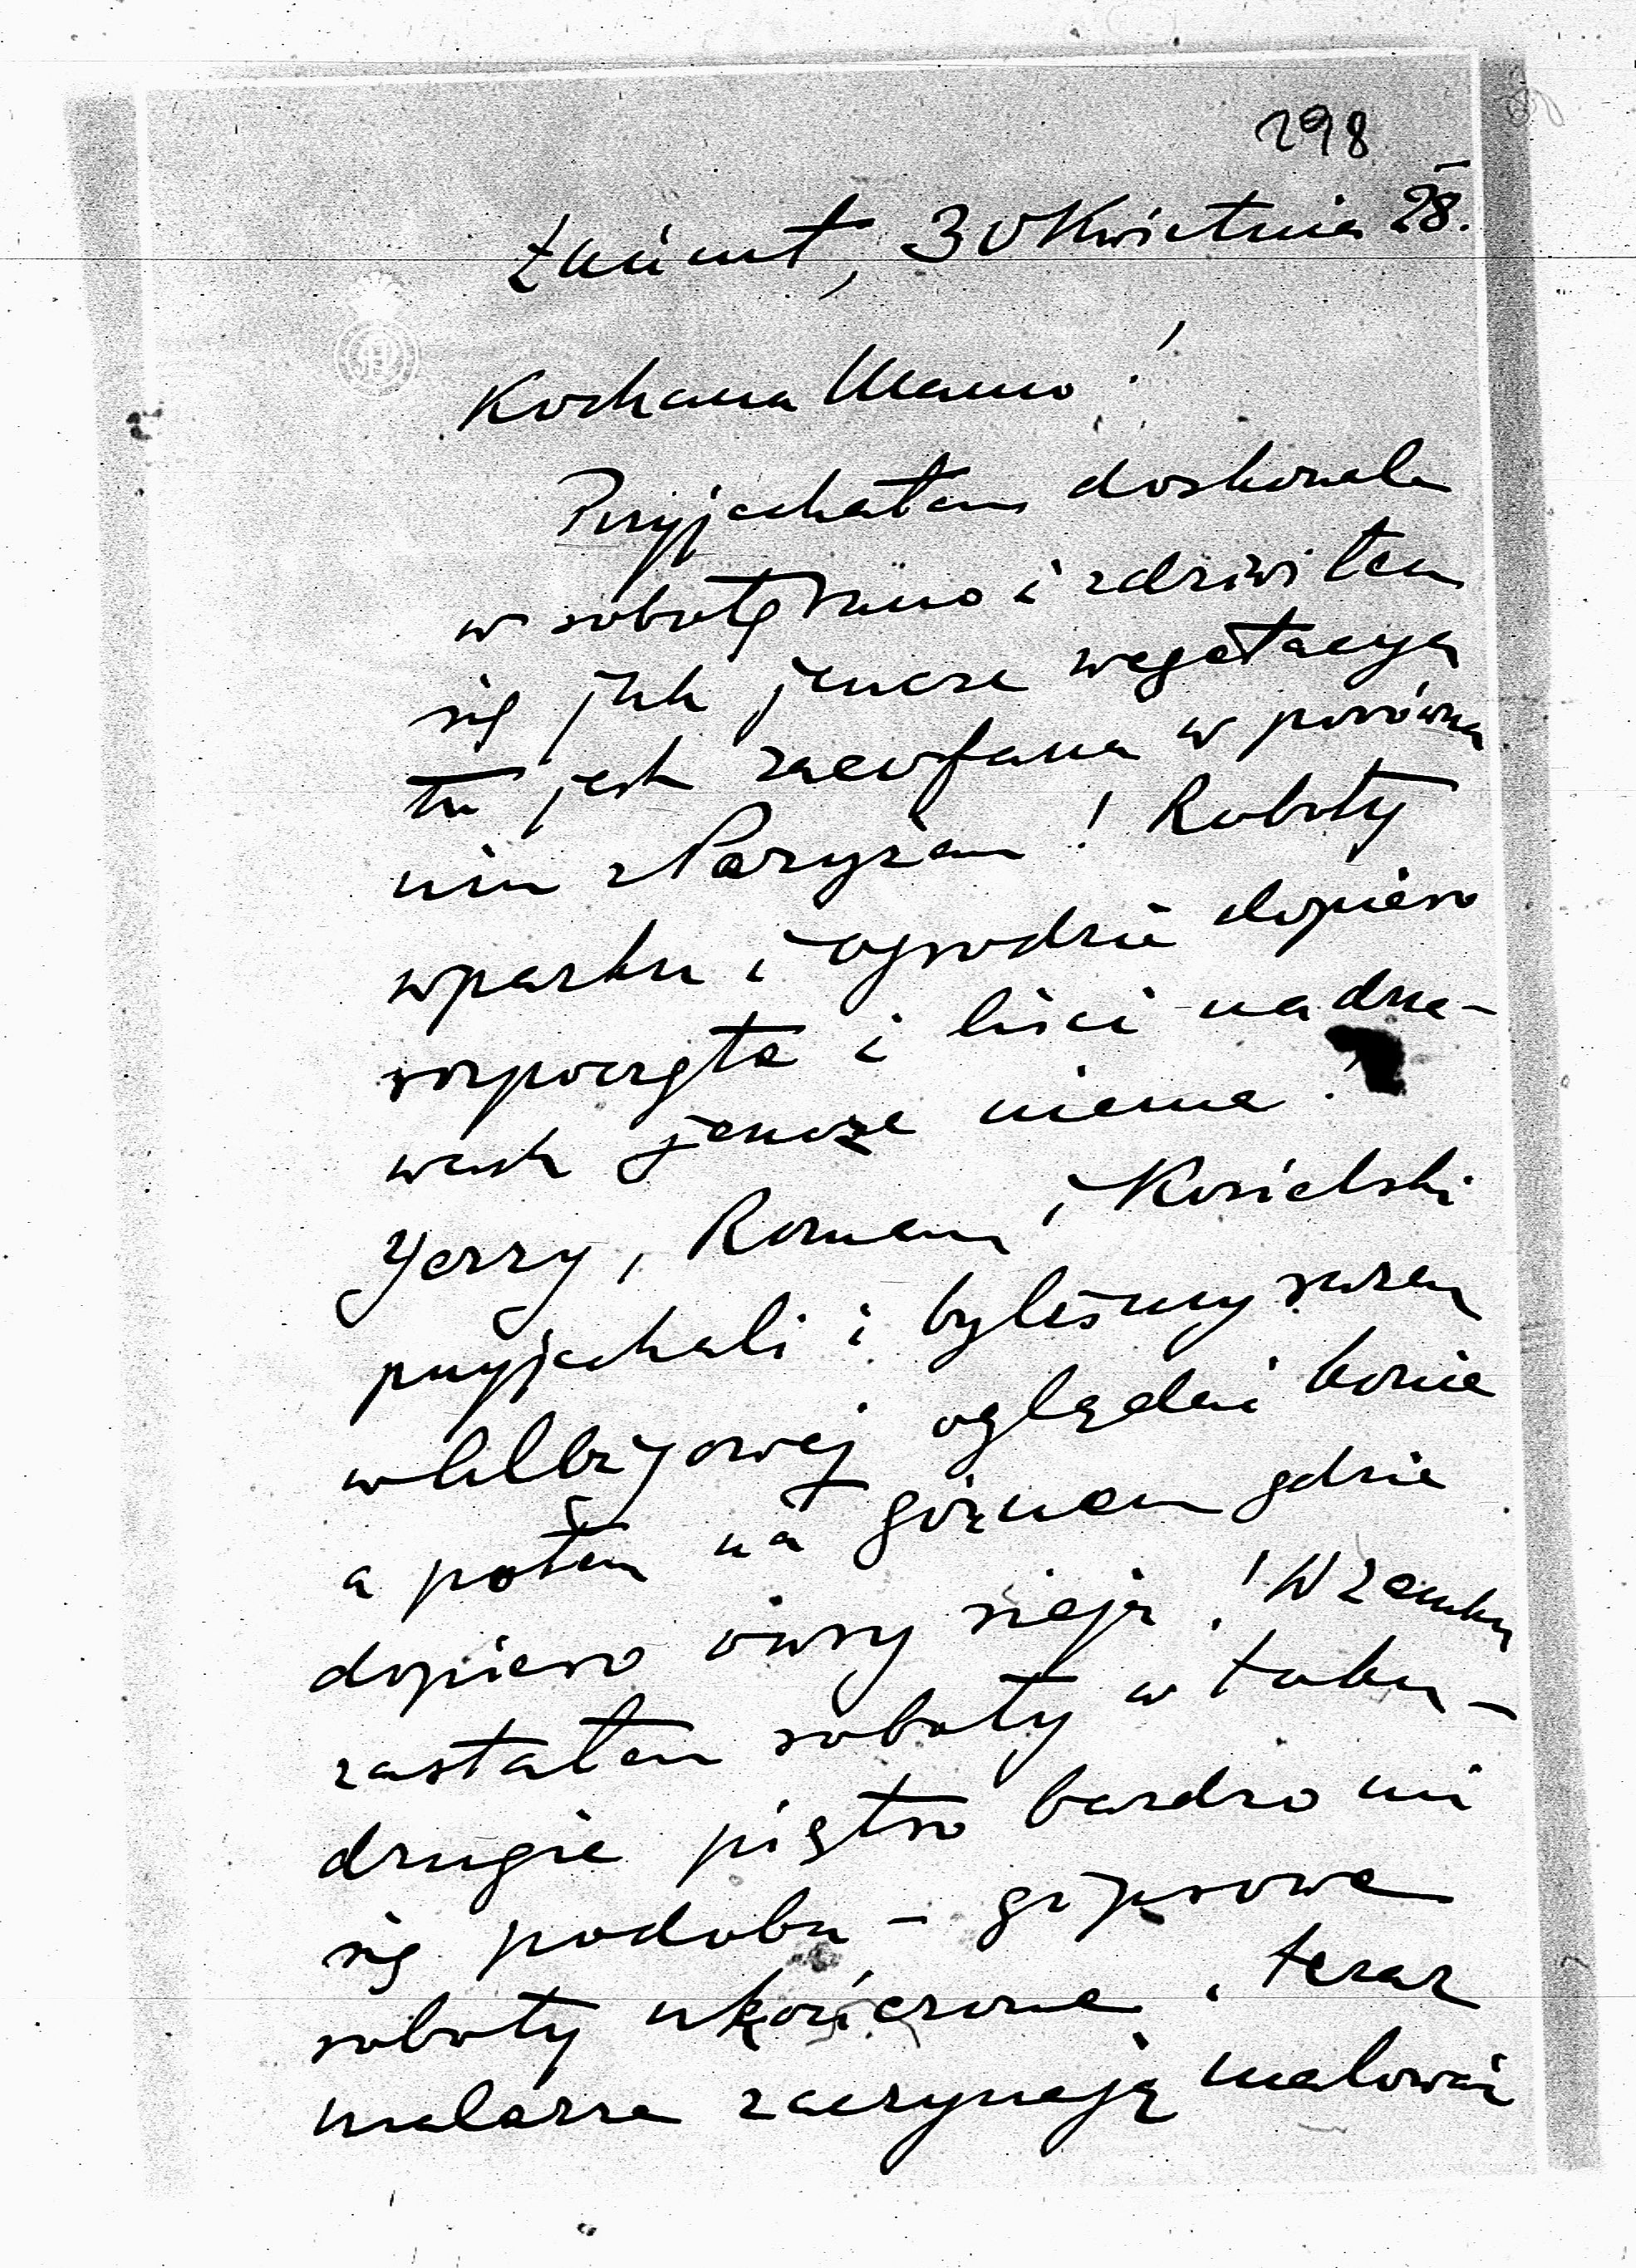 298
Łańcut, 30 Kwietnia 28.
Kochana Mamo!
Przyjechałem doskonale
w sobotę rano i zdziwiłem
się jak jeszcze wegetacya
tu jest zacofana w porówna
niu z Paryżem! Roboty
w parku i ogrodzie dopiero
rozpoczęte i liści na drze-
wach jeszcze niema!
Jerzy, Roman i Kosielski
przyjechali i byliśmy razem
w Albigowej oglądać konie
a potem na górnem gdzie
dopiero owsy sieją! W zamku
zastałem roboty w toku -
drugie piętro bardzo mi
się podoba - gipsowe
roboty ukończone, teraz
malarze zaczynają malować